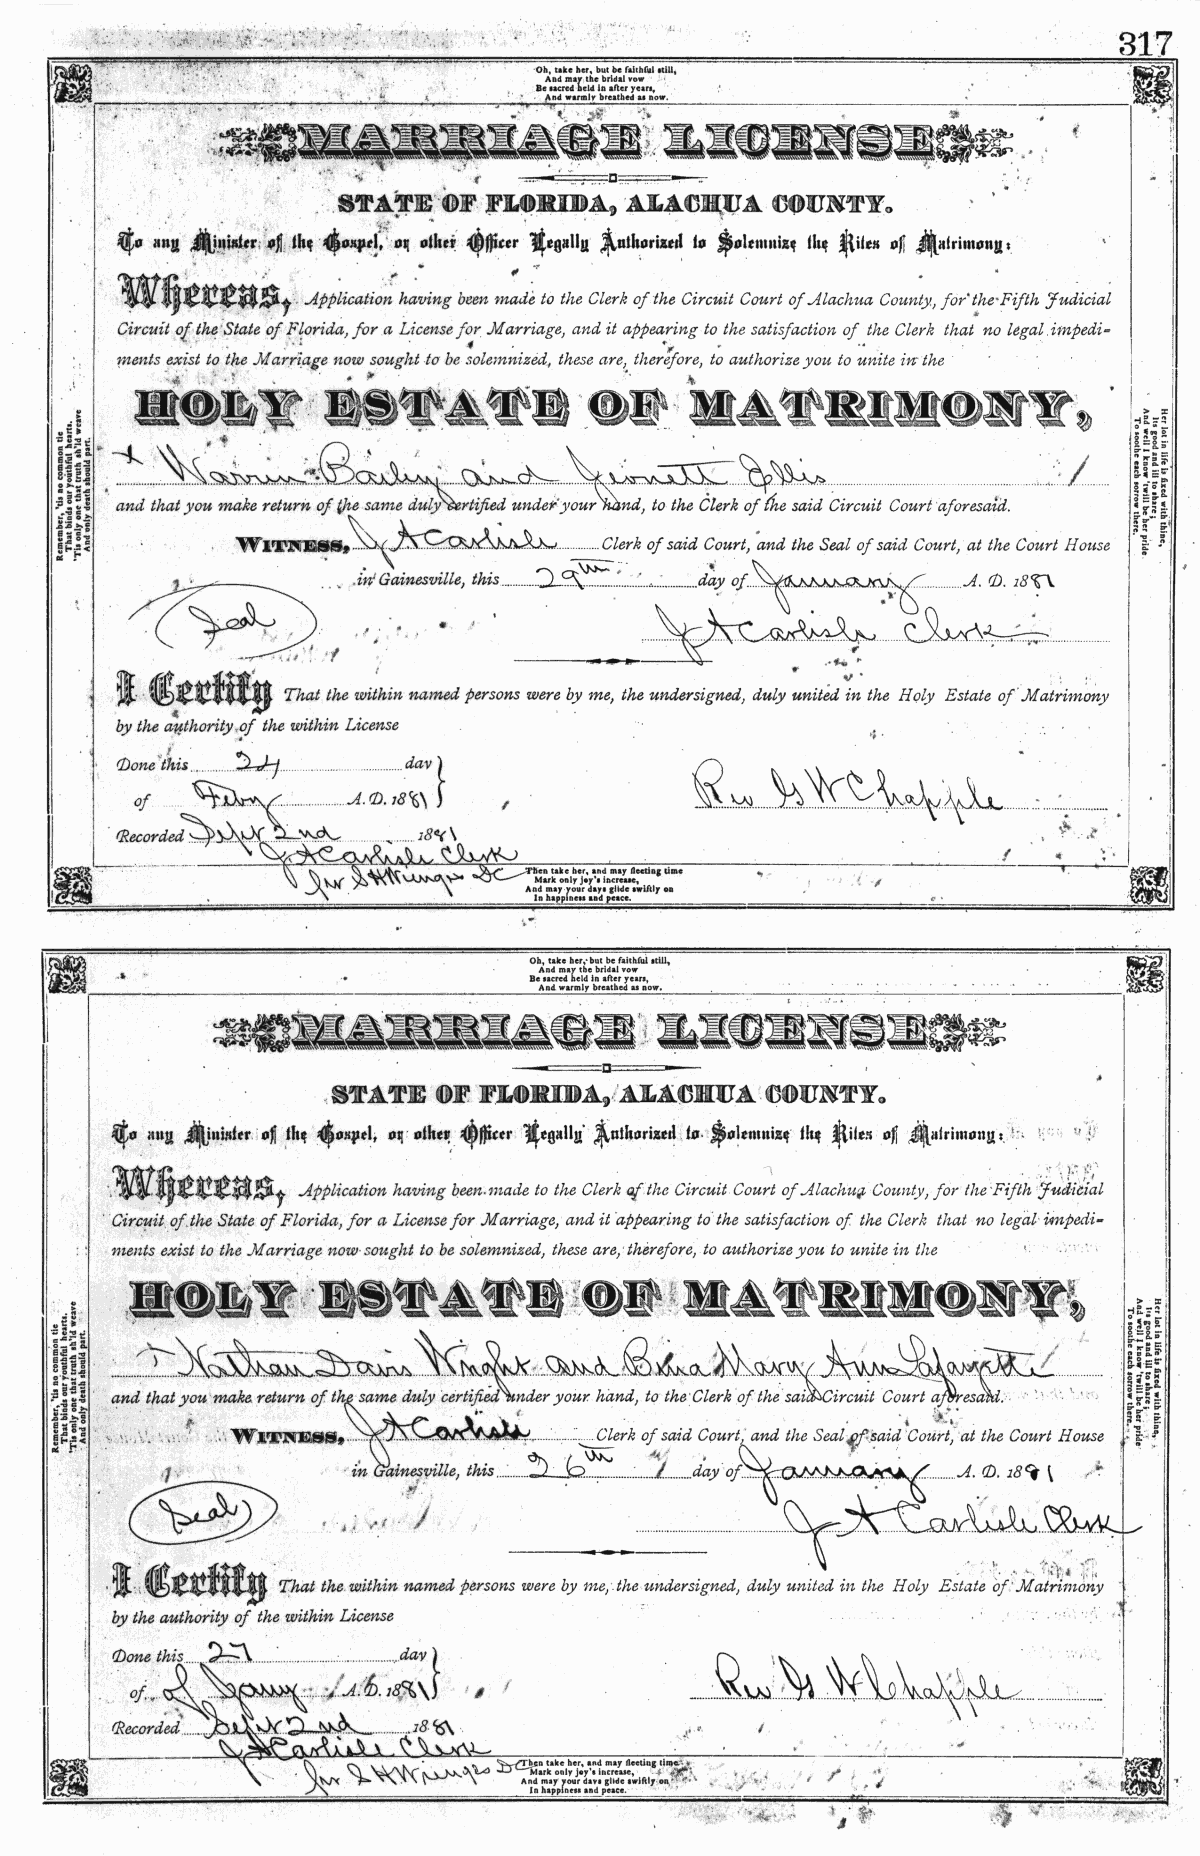 317
Oh, take her, but be faithful still,
And may the bridal vow
Be sacred held in after years,
And warmly breathed as now.
MARRIAGE LICENSE
STATE OF FLORIDA, ALACHUA COUNTY.
To any Minister of the Gospel, or other Officer Legally Authorized to Solemnize the Rites of Matrimony:
Whereas, Application having been made to the Clerk of the Circuit Court of Alachua County, for the Fifth Judicial
Circuit of the State of Florida, for a License for Marriage, and it appearing to the satisfaction of the Clerk that no legal impedi-
ments exist to the Marriage now sought to be solemnized, these are, therefore, to authorize you to unite in the
HOLY ESTATE OF MATRIMONY,
Remember, 'tis no common tie
That binds our youthful hearts,
'Tis only one that truth sh'ld weave
And only death should part.
Her lot in life is fixed with thine,
Its good and ill to share;
And well I know 'twill be her pride
To soothe each sorrow there.
x Warren Bailey and Jennett Ellis
and that you make return of the same duly certified under your hand, to the Clerk of the said Circuit Court aforesaid.
WITNESS, J A Carlisle Clerk of said Court, and the Seal of said Court, at the Court House
in Gainesville, this 29th day of January A. D. 1881
Seal
J A Carlisle Clerk
I Certify That the within named persons were by me, the undersigned, duly united in the Holy Estate of Matrimony
by the authority of the within License
Done this 24 day
of Feby A. D. 1881
Rev G W Chapple
Recorded Sept 2nd 1881
J A Carlisle Clerk
per S H Wienges DC
Then take her, and may fleeting time
Mark only joy's increase,
And may your days glide swiftly on
In happiness and peace.
Oh, take her, but be faithful still,
And may the bridal vow
Be sacred held in after years,
And warmly breathed as now.
MARRIAGE LICENSE
STATE OF FLORIDA, ALACHUA COUNTY.
To any Minister of the Gospel, or other Officer Legally Authorized to Solemnize the Rites of Matrimony:
Whereas, Application having been made to the Clerk of the Circuit Court of Alachua County, for the Fifth Judicial
Circuit of the State of Florida, for a License for Marriage, and it appearing to the satisfaction of the Clerk that no legal impedi-
ments exist to the Marriage now sought to be solemnized, these are, therefore, to authorize you to unite in the
HOLY ESTATE OF MATRIMONY,
Remember, 'tis no common tie
That binds our youthful hearts,
'Tis only one that truth sh'ld weave
And only death should part.
Her lot in life is fixed with thine,
Its good and ill to share;
And well I know 'twill be her pride
To soothe each sorrow there.
Nathan Davis Wright and Bina Mary Ann Lafayette
and that you make return of the same duly certified under your hand, to the Clerk of the said Circuit Court aforesaid.
WITNESS, J A Carlisle Clerk of said Court, and the Seal of said Court, at the Court House
in Gainesville, this 26th day of January A. D. 1881
Seal
J A Carlisle Clerk
I Certify That the within named persons were by me, the undersigned, duly united in the Holy Estate of Matrimony
by the authority of the within License
Done this 27 day
of of Jany A. D. 1881
Rev G W Chapple
Recorded Sept 2nd 1881
J A Carlisle Clerk
per S H Wienges DC
Then take her, and may fleeting time
Mark only joy's increase,
And may your days glide swiftly on
In happiness and peace.